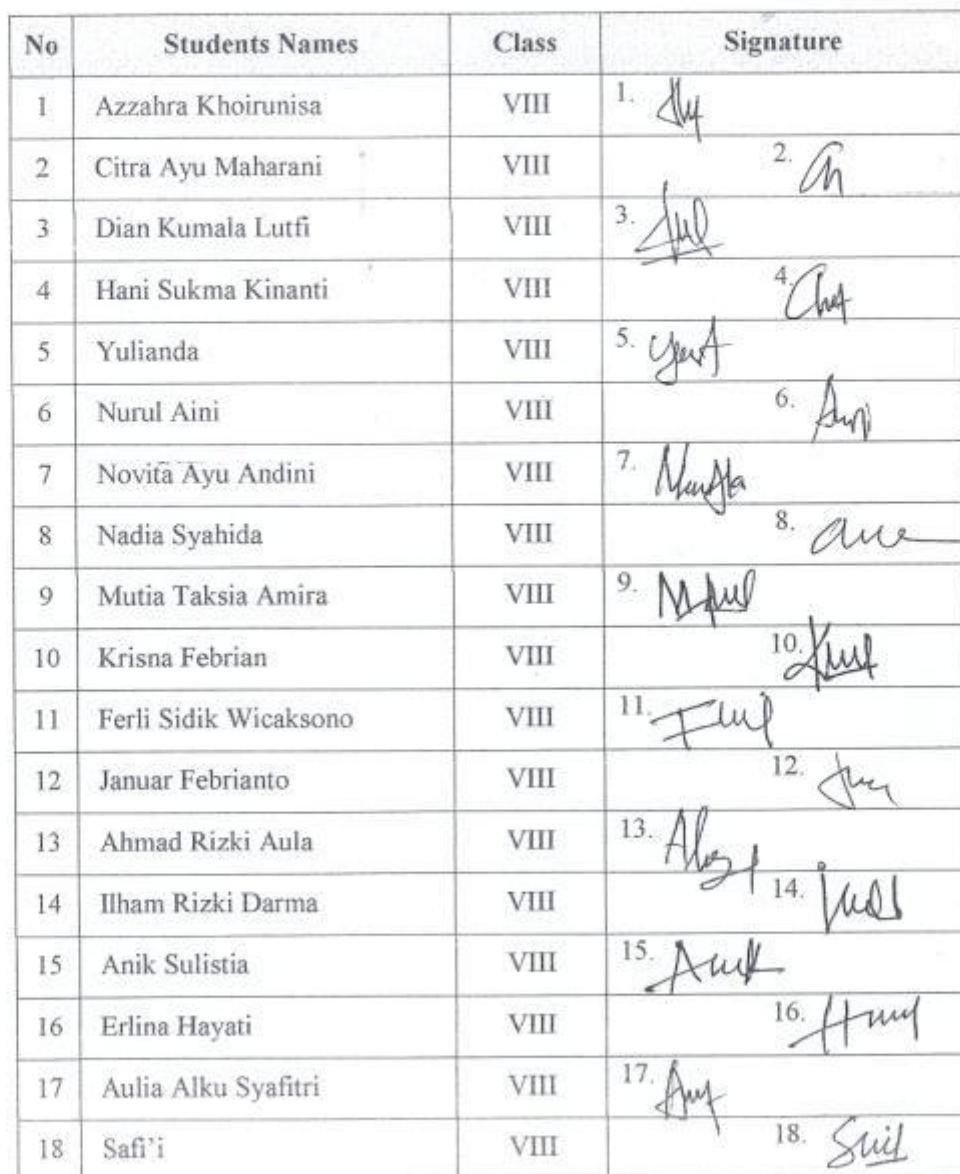 No Students Names Class Signature
1 Azzahra Khoirunisa VIII 1.
2 Citra Ayu Maharani VIII 2.
3 Dian Kumala Lutfi VIII 3.
4 Hani Sukma Kinanti VIII 4.
5 Yulianda VIII 5.
6 Nurul Aini VIII 6.
7 Novita Ayu Andini VIII 7.
8 Nadia Syahida VIII 8.
9 Mutia Taksia Amira VIII 9.
10 Krisna Febrian VIII 10.
11 Ferli Sidik Wicaksono VIII 11.
12 Januar Febrianto VIII 12.
13 Ahmad Rizki Aula VIII 13.
14 Ilham Rizki Darma VIII 14.
15 Anik Sulistia VIII 15.
16 Erlina Hayati VIII 16.
17 Aulia Alku Syafitri VIII 17.
18 Safi’i VIII 18.